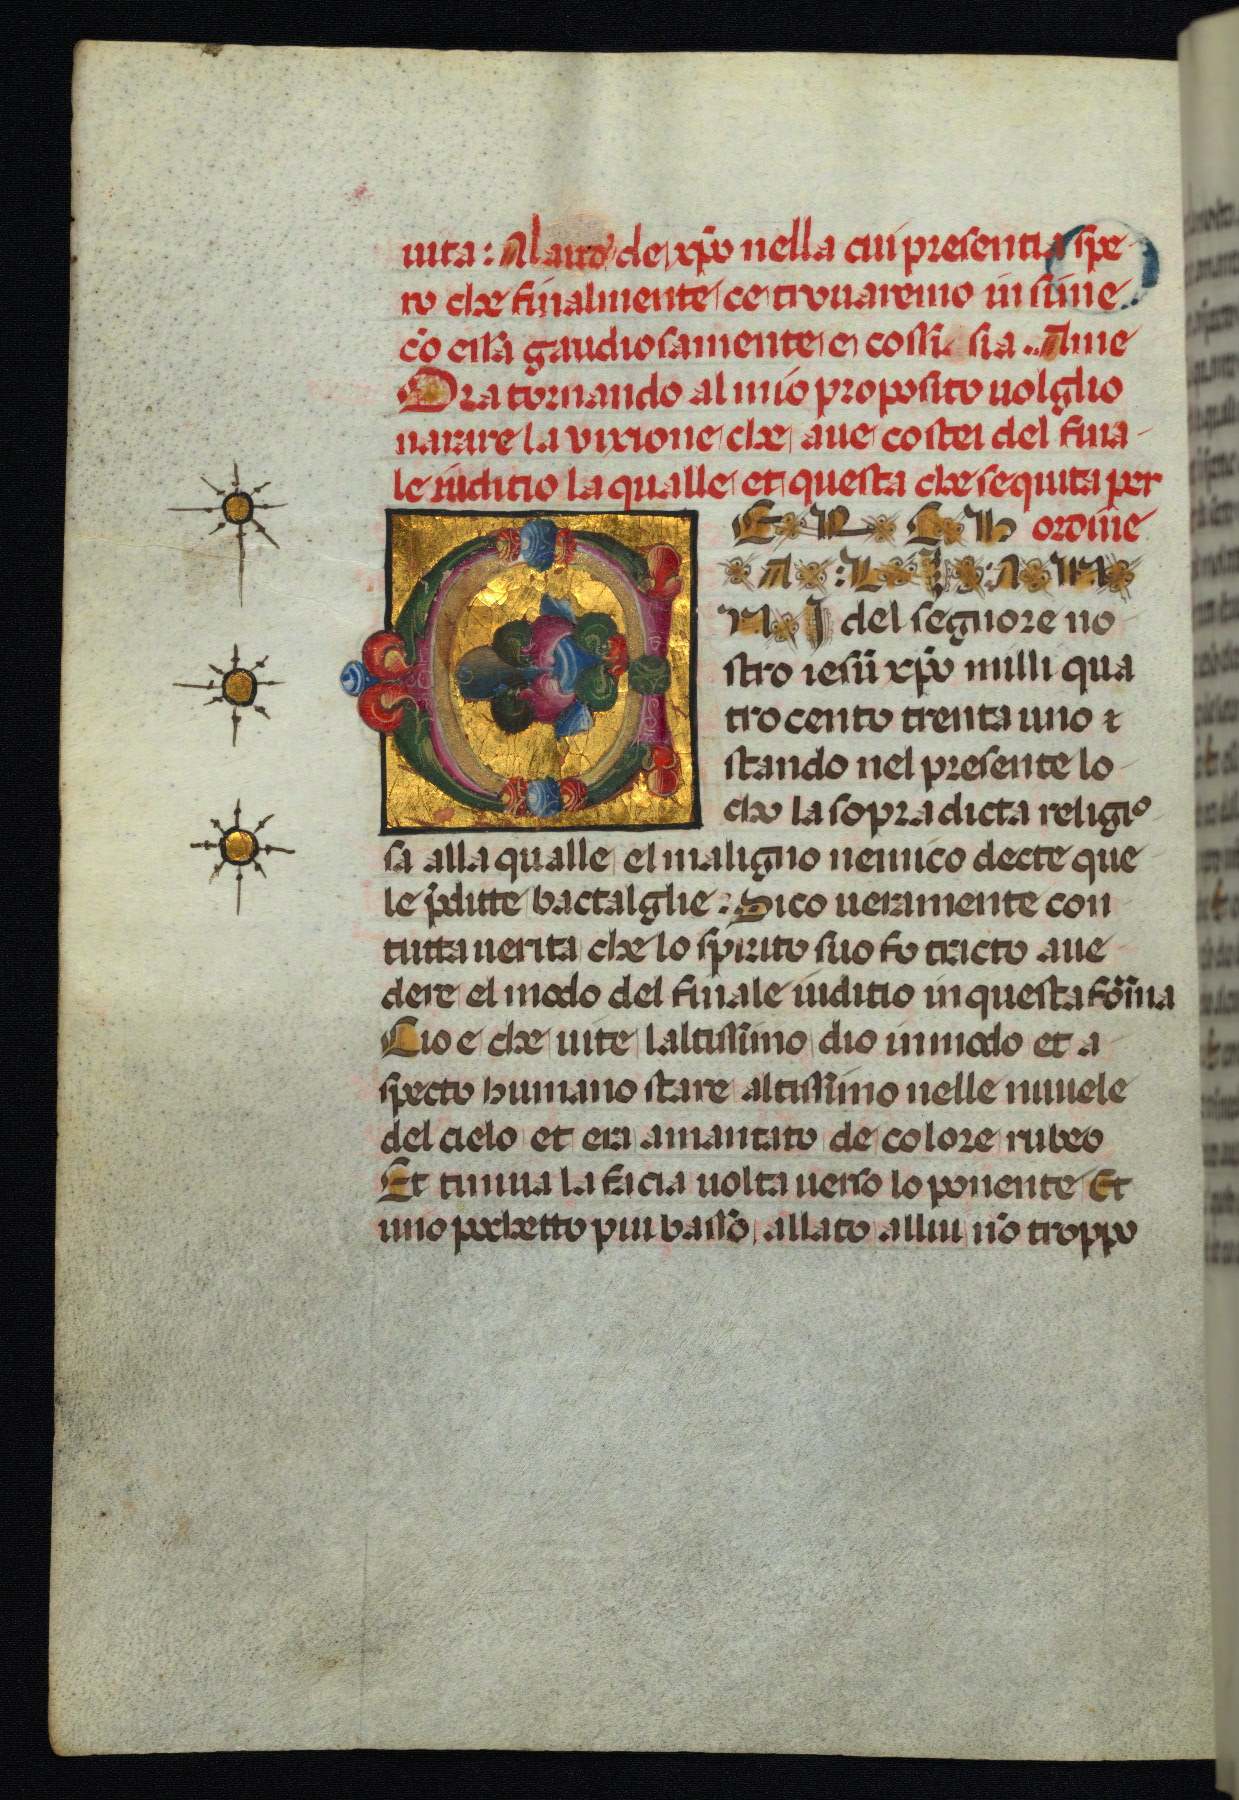 uita: Al lato de xp̄o nella cui presentia spe
ro che finalmente ce trouaremo insime
cō essi gaudiosamente e cossi sia . Ame
Ora tornando al mio proposito uolglio
narare la uixione che aue costei del fina
le iuditio la qualle et questa che sequita per
ordine
E R C H
A : L I : A N
N I del segnore no
stro iesū xp̄o milli qua
tro cento trenta uno ⁊
stando nel presente lo
cho la sopra dicta religio
sa alla qualle el maligno nemico decte que
le p̄ditte bactalglie : Dico ueramente con
tutta uerita che lo spirito suo fo tracto aue
dere el modo del finale iuditio in questa fōrma
Cio e che uite laltissimo dio in modo et a
specto humano stare altissimo nelle nuuele
del cielo et era amantato de colore rubeo
Et tiniua la facia uolta uerso lo ponente Et
uno pochetto piu basso allato allui nō troppo